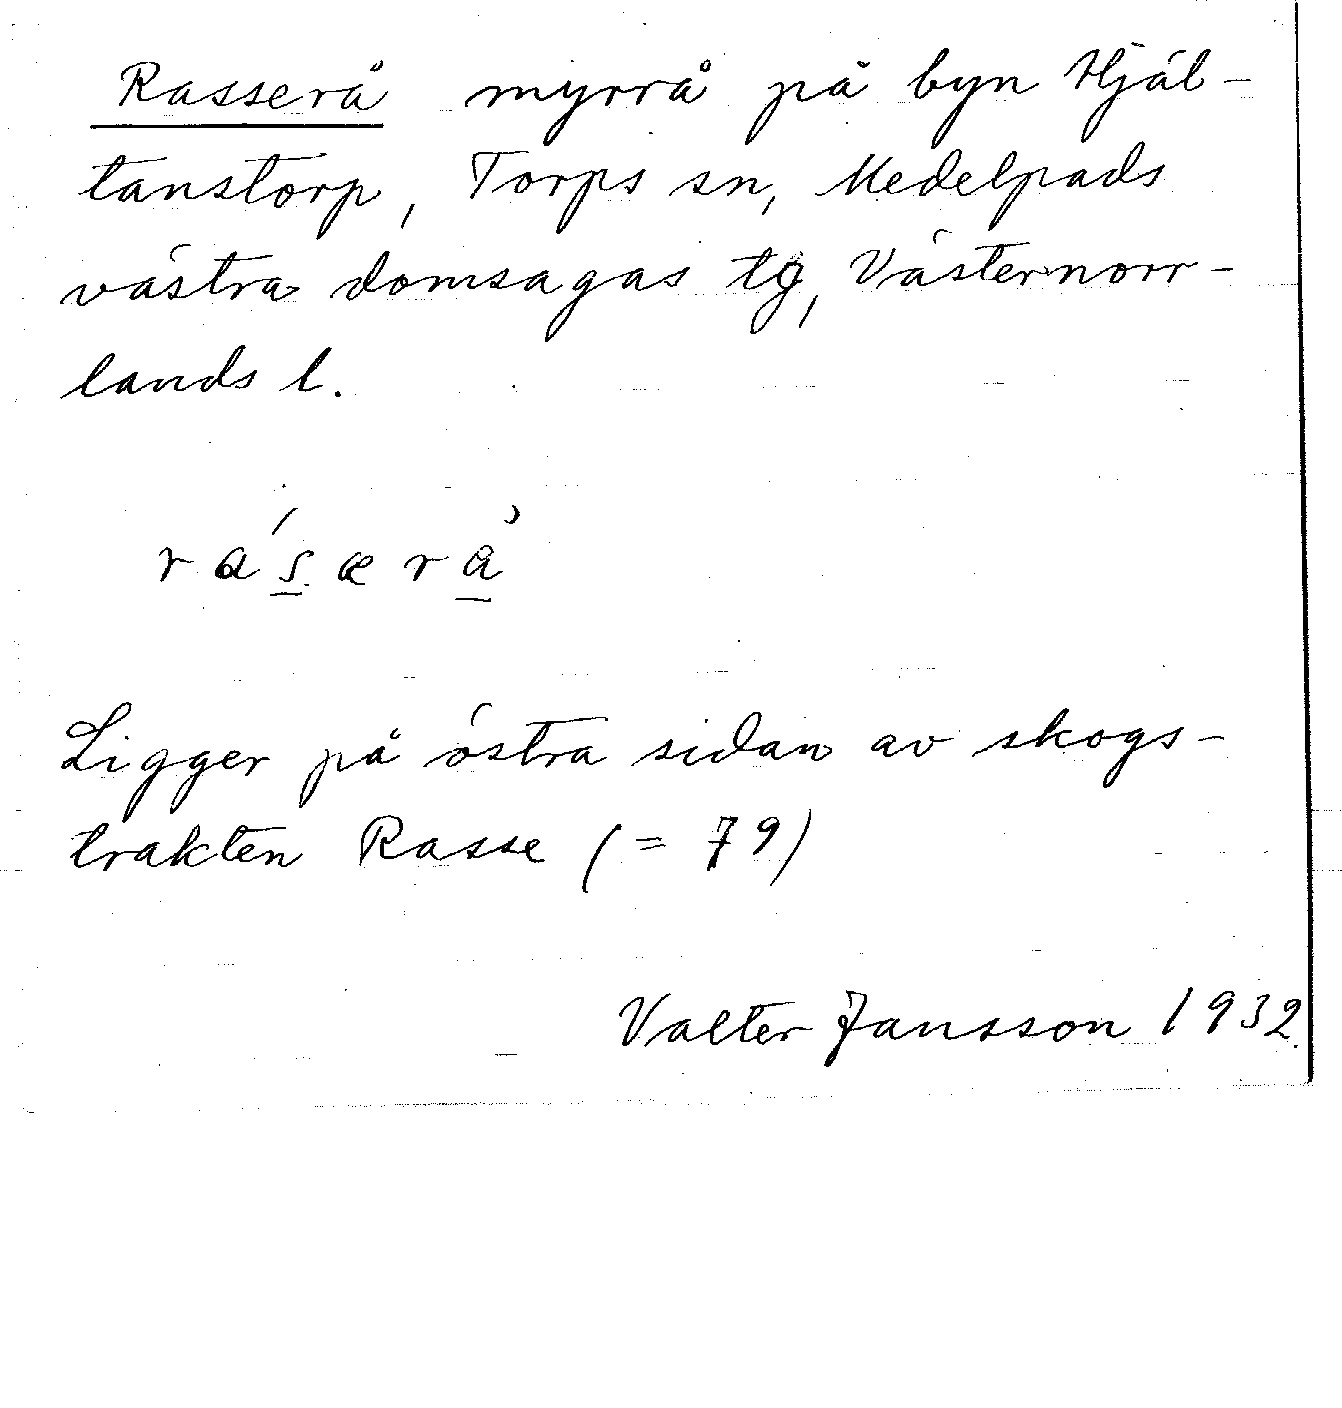 Rasserå myrrå på byn Hjäl-
tanstorp, Torps sn, Medelpads
västra domsagas tg, Västernorr-
lands l.
rásærå
Ligger på östra sidan av skogs-
trakten Rasse (= 79)
Valter Jansson 1932.